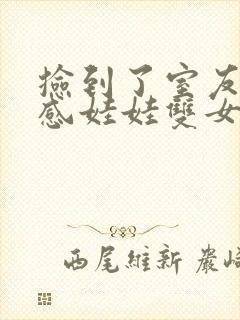 撿到了室友
感娃娃雙女
西尾維新 嚴崎